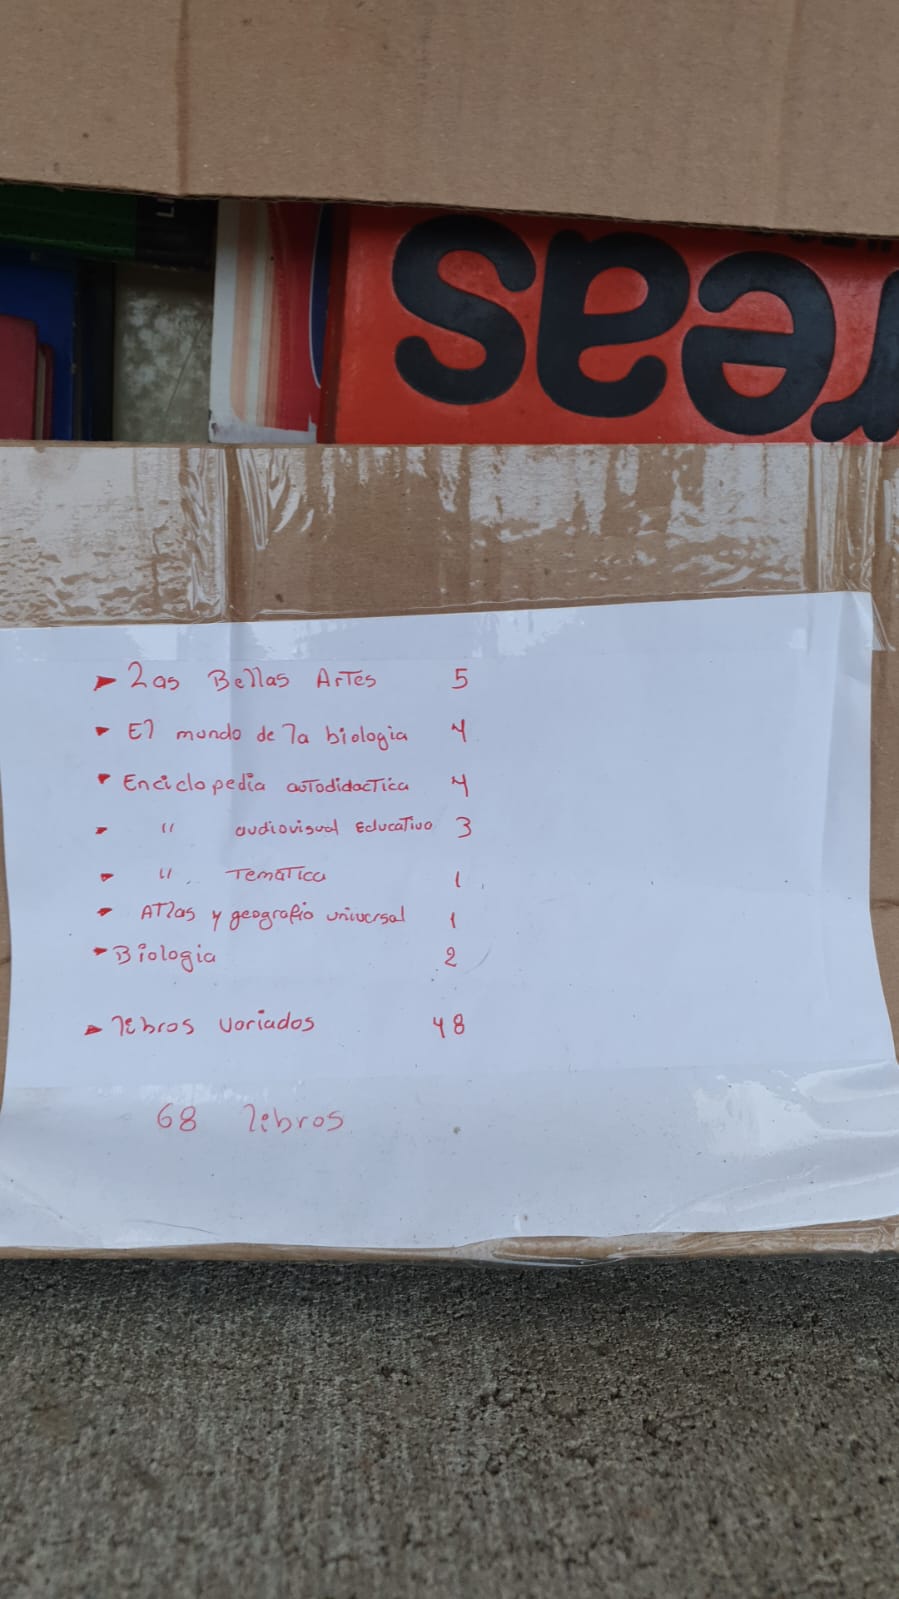 LI
reas
Las Bellas Artes 5
El mundo de la biologia 4
Enciclopedia autodidactica 4
" audiovisual Educativo 3
" Tematica 1
Atlas y geografia universal 1
Biologia 2
libros variados 48
68 libros